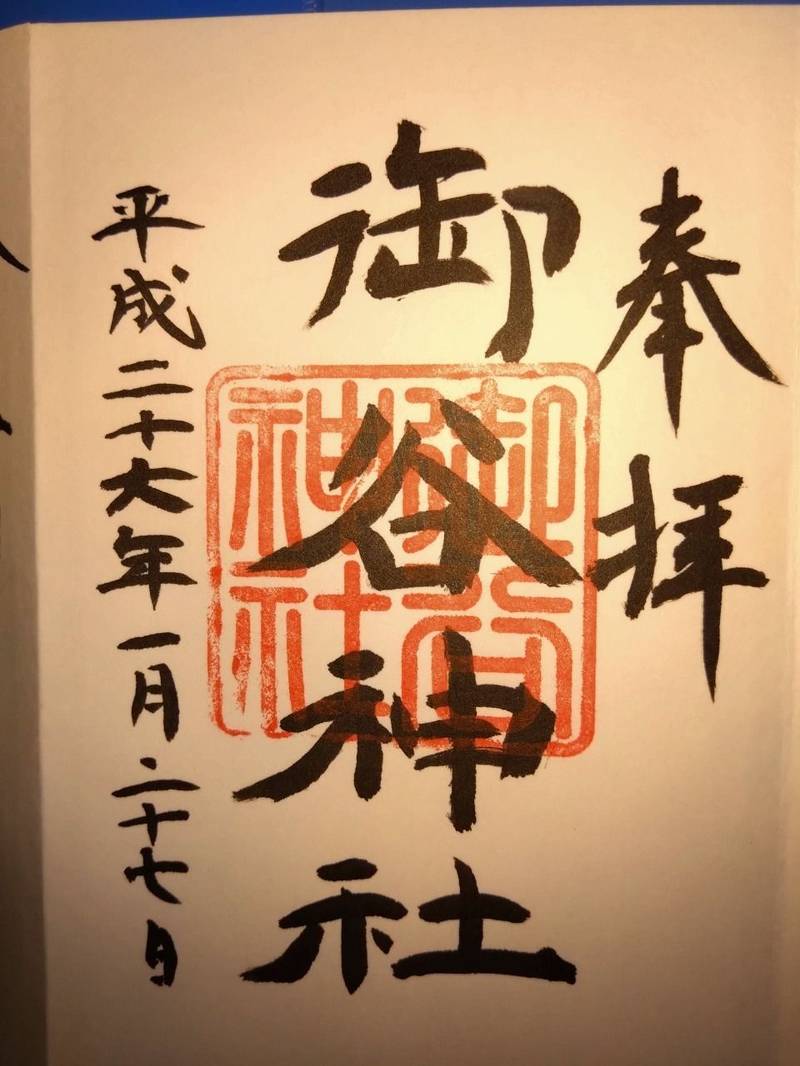 奉拝
御谷神社
御谷
神社
平成二十六年一月二十七日